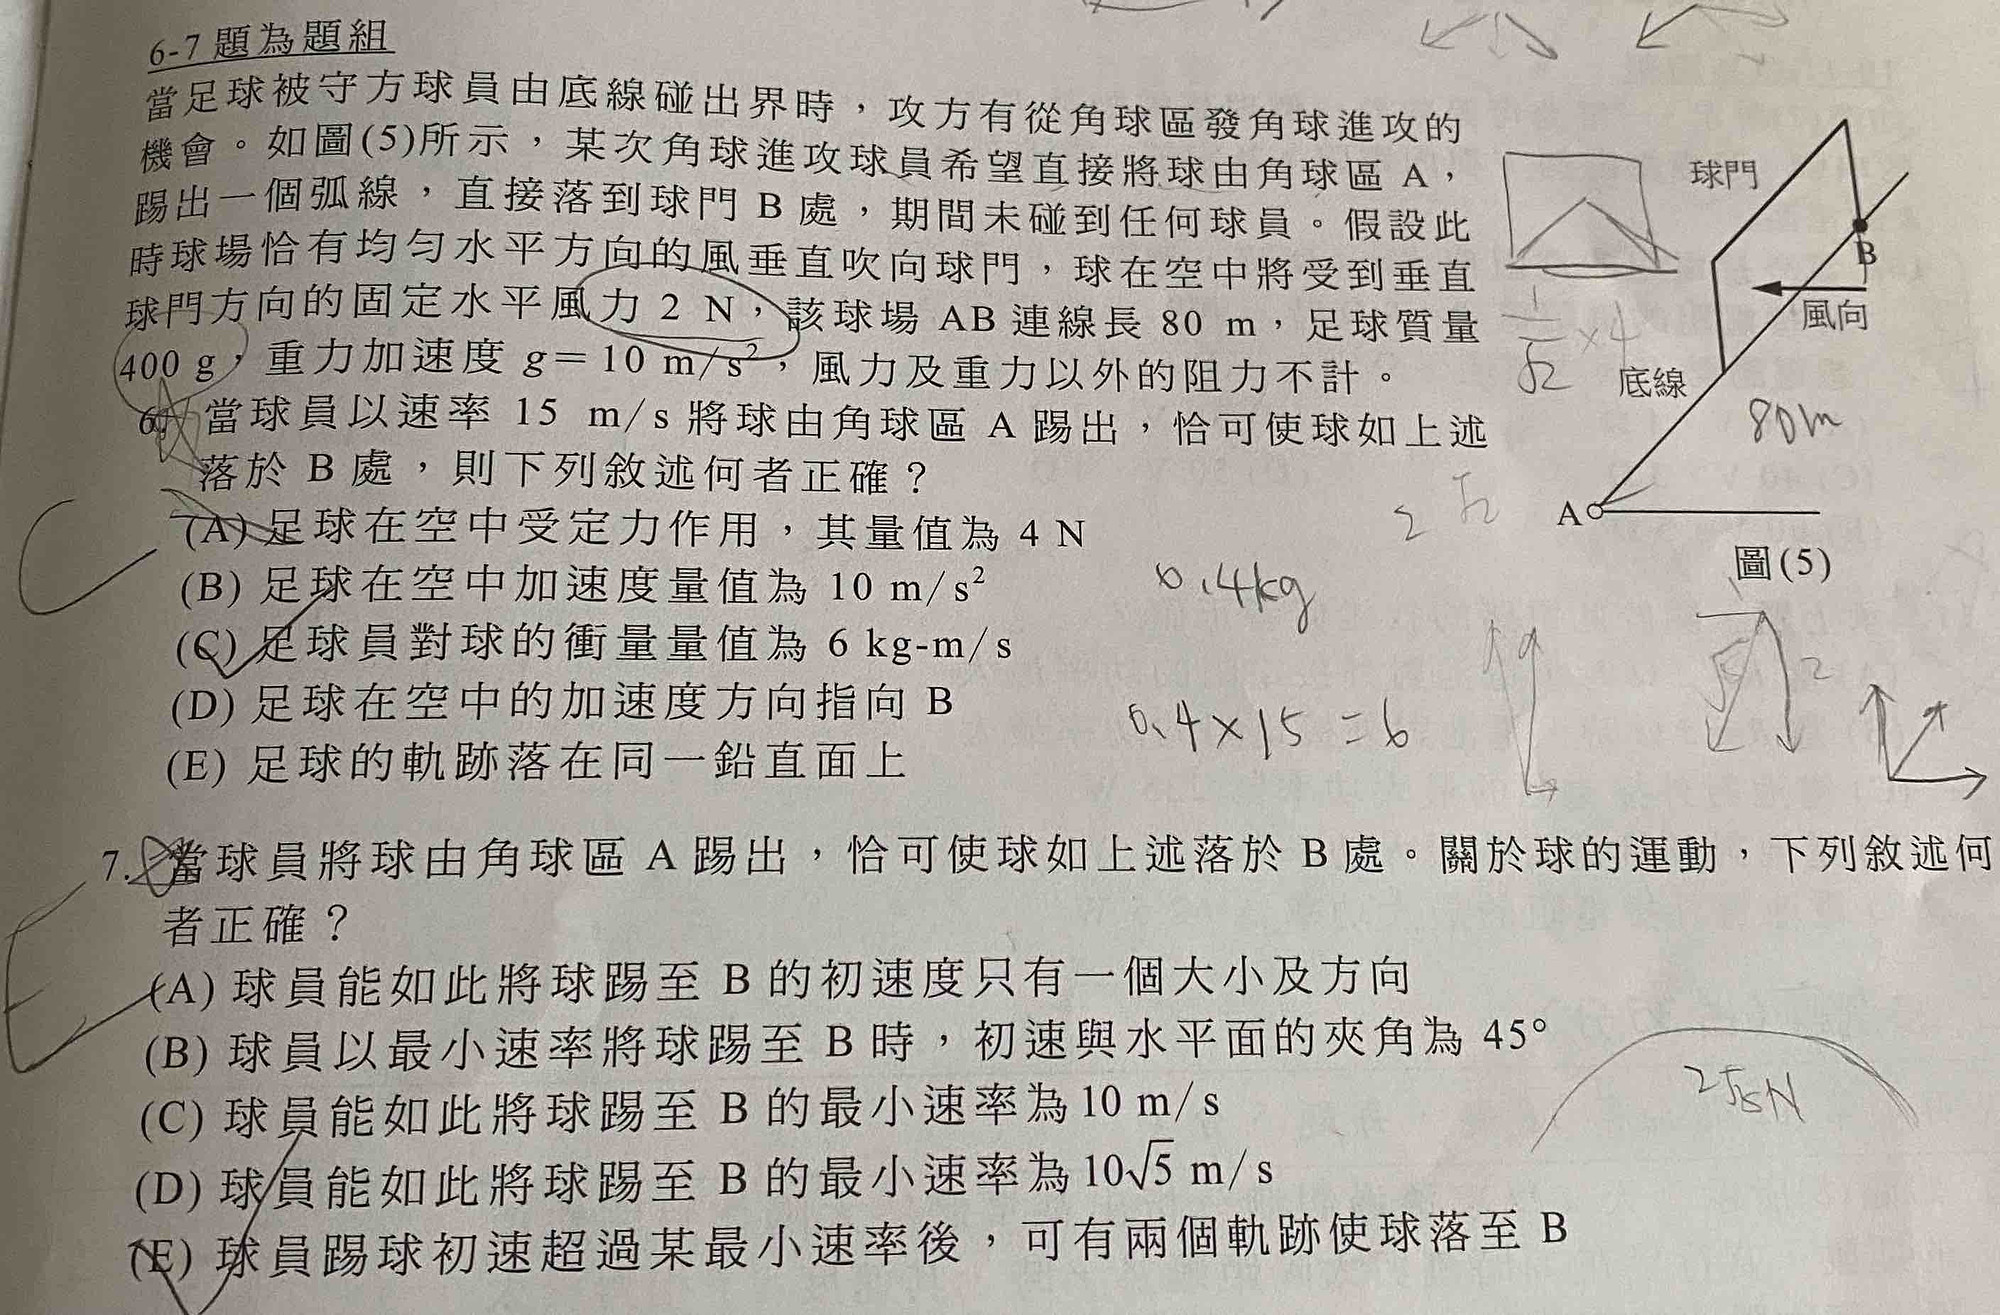 6-7 題為題組
當足球被守方球員由底線碰出界時，攻方有從角球區發角球進攻的
機會。如圖(5)所示，某次角球進攻球員希望直接將球由角球區 A，
踢出一個弧線，直接落到球門 B 處，期間未碰到任何球員。假設此
時球場恰有均勻水平方向的風垂直吹向球門，球在空中將受到垂直
球門方向的固定水平風力 2 N，該球場 AB 連線長 80 m，足球質量
400 g，重力加速度 g＝10 m/s²，風力及重力以外的阻力不計。
球門
B
風向
底線
80m
A
圖(5)
1/√2 ×4
6. 當球員以速率 15 m/s 將球由角球區 A 踢出，恰可使球如上述
落於 B 處，則下列敘述何者正確？
C
(A) 足球在空中受定力作用，其量值為 4 N
(B) 足球在空中加速度量值為 10 m/s²
(C) 足球員對球的衝量量值為 6 kg-m/s
(D) 足球在空中的加速度方向指向 B
(E) 足球的軌跡落在同一鉛直面上
2 √2
0.4kg
0.4×15=6
√5 2
7. 當球員將球由角球區 A 踢出，恰可使球如上述落於 B 處。關於球的運動，下列敘述何
者正確？
E
(A) 球員能如此將球踢至 B 的初速度只有一個大小及方向
(B) 球員以最小速率將球踢至 B 時，初速與水平面的夾角為 45°
(C) 球員能如此將球踢至 B 的最小速率為 10 m/s
(D) 球員能如此將球踢至 B 的最小速率為 10√5 m/s
(E) 球員踢球初速超過某最小速率後，可有兩個軌跡使球落至 B
2√5N